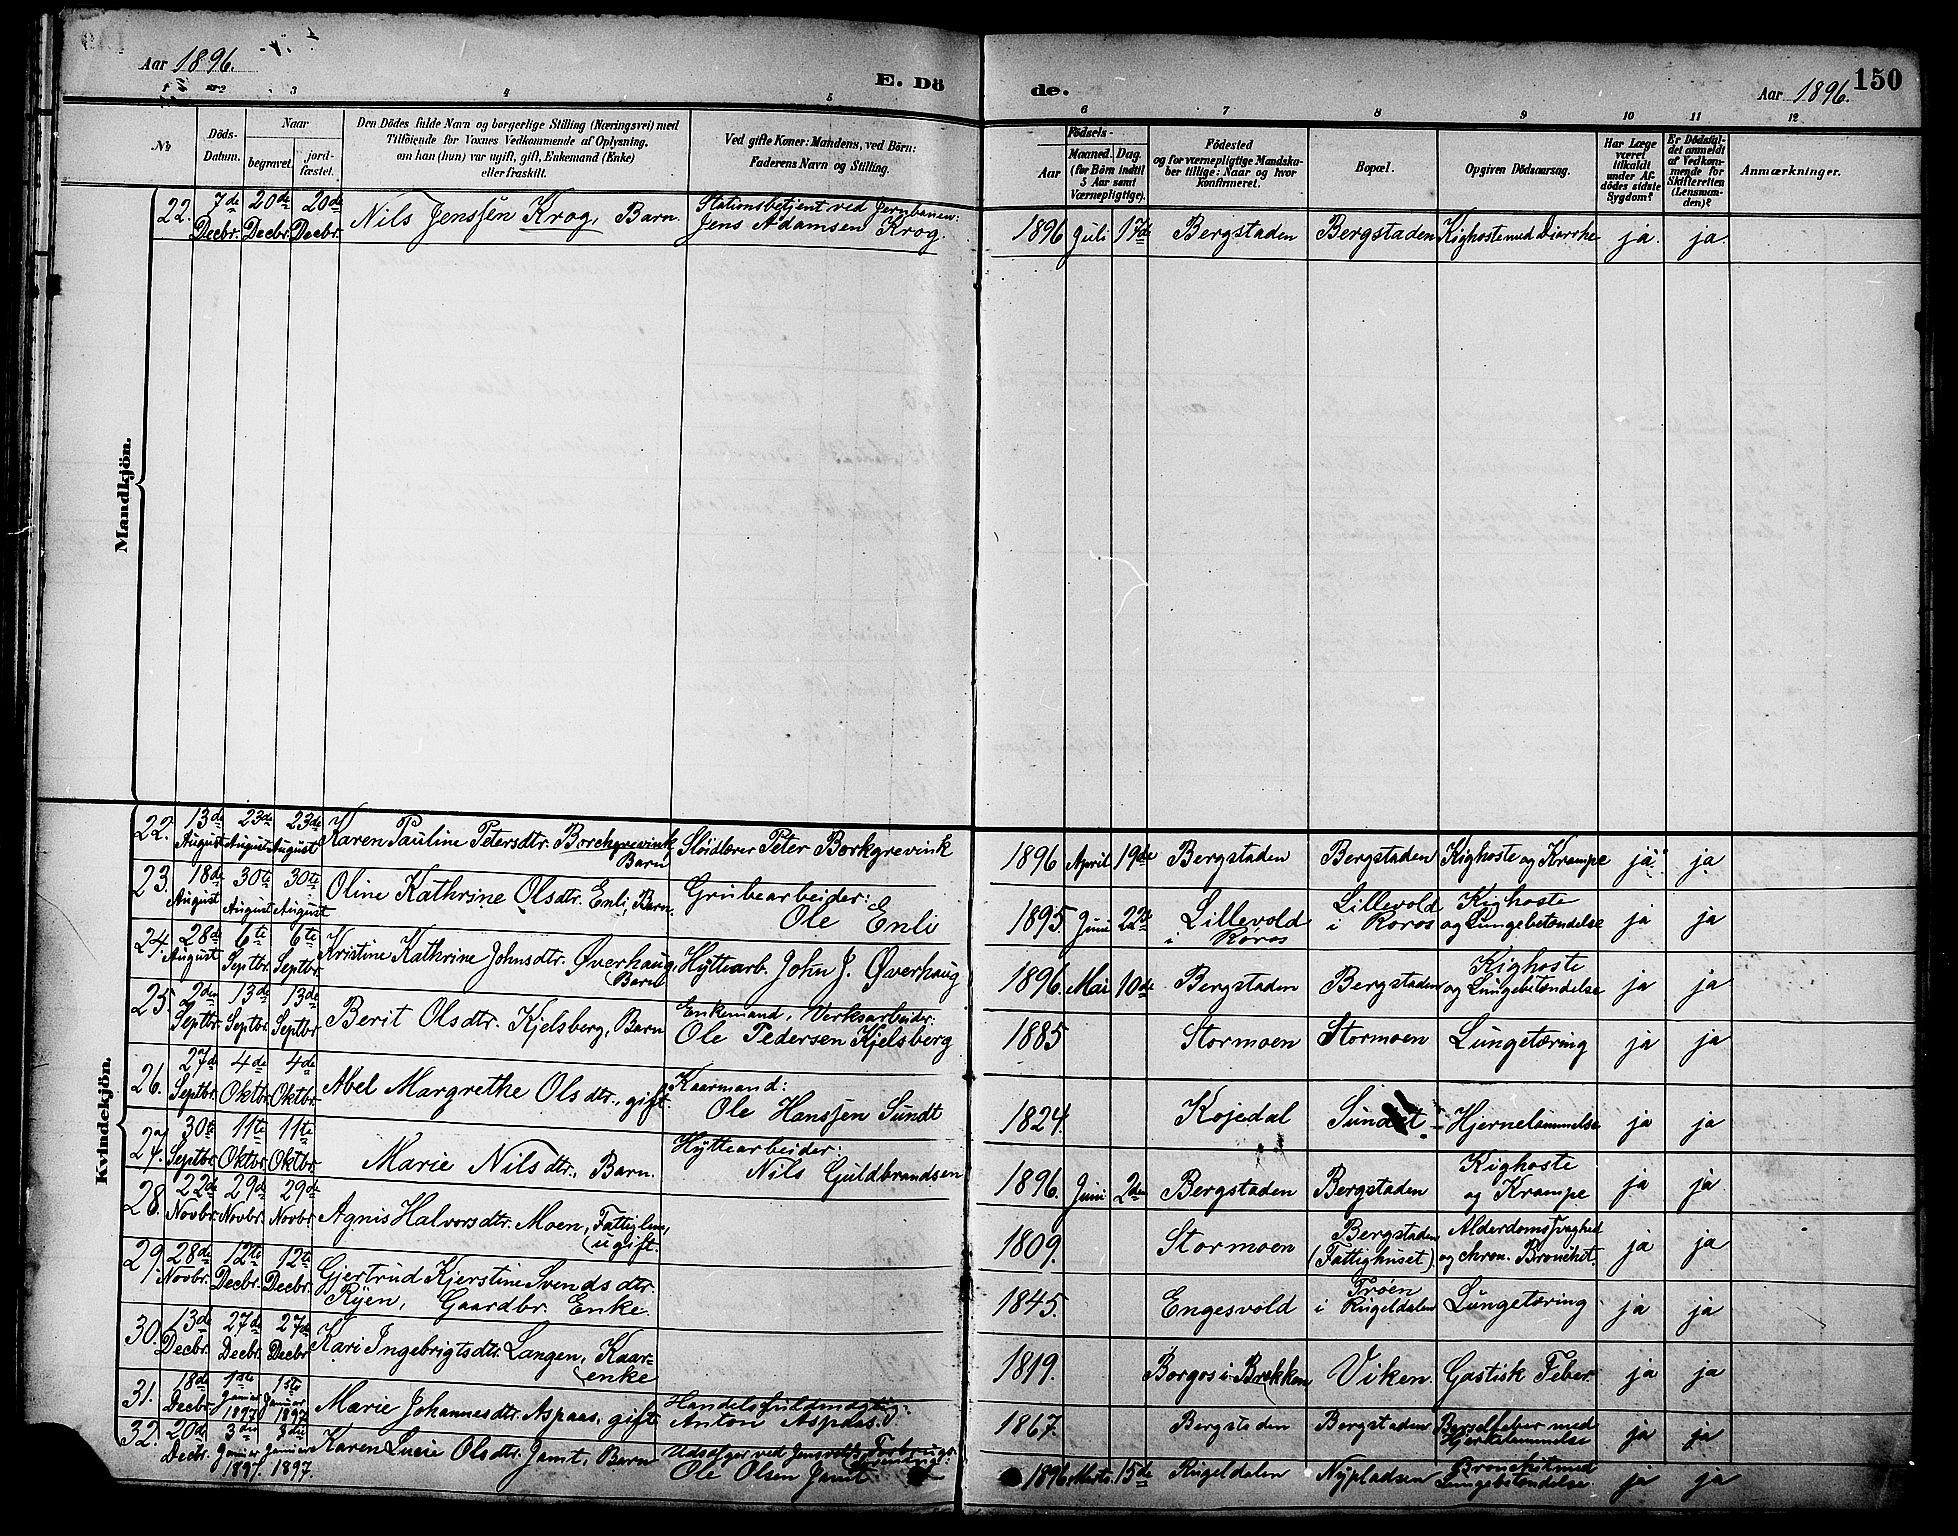 Aar 1896.
E. Dö
de.
Aar 1896.
150
1 2 3 4 5
6 7 8 9 10 11 12
No
Döds-
Datum.
Naar
begravet.
jord-
fæstet.
Den Dödes fulde Navn og borgerlige Stilling (Næringsvei) med
Tilföiende for Voxnes Vedkommende af Oplysning,
om han (hun) var ugift, gift, Enkemand (Enke)
eller fraskilt.
Ved gifte Koner: Mandens, ved Börn:
Faderens Navn og Stilling.
Födsels-
Aar
Maaned. Dag.
(for Börn indtil
5 Aar samt
Værnepligtige).
Födested
og for værnepligtige Mandska-
ber tillige: Naar og hvor
Konfirmeret.
Bopæl.
Opgiven Dödsaarsag.
Har Læge
været
tilkaldt
under Af-
dödes sidste
Sygdom?
Er Dödsfal-
det anmeldt
af Vedkom-
mende for
Skifteretten
(Lensman-
den)?
Anmærkninger.
Mandkjön.
22. 7de Decbr. 20de Decbr. 20de Decbr. Nils Jenssen Krog, Barn. Stationsbetjent ved Jernbanen:
Jens Adamsen Krog.
1896 Juli 17de Bergstaden Bergstaden Kighoste med Diarrhe ja. ja.
Kvindekjön.
22. 13de August 23de August 23de August Karen Pauline Petersdtr. Borchgrevink
Barn
Slöidlærer Peter Borkgrevink
1896 April 19de Bergstaden Bergstaden Kighoste og Krampe ja ja
23. 18de August 30te August 30te August Oline Kathrine Olsdtr. Enli, Barn. Grubearbeider:
Ole Enli
1895. Juni 22de Lillevold
i Röros
Lillevold
i Roros
Kighoste
og Lungebetændelse
ja ja
24. 28de August 6te Septbr. 6te Septbr. Kristine Kathrine Johnsdtr. Øverhaug,
Barn
Hyttearb. John J. Øverhaug
1896. Mai 10de Bergstaden Bergstaden Kighoste
og Lungebetændelse
ja ja
25. 2den Septbr. 13de Septbr. 13de Septbr. Berit Olsdtr. Kjelsberg, Barn Enkemand, Verksarbeider:
Ole Pedersen Kjelsberg
1885 Stormoen Stormoen Lungetæring ja ja
26. 27de Septbr. 4de Oktbr. 4de Oktbr. Abel Margrethe Olsdtr., gift. Kaarmand:
Ole Hanssen Sundt
1824. Kojedal Sundet Hjernelammelse ja ja
27. 30te Septbr. 11te Oktbr. 11te Oktbr. Marie Nilsdtr., Barn. Hyttearbeider:
Nils Guldbrandsen
1896. Juni 2den Bergstaden Bergstaden Kighoste
og Krampe
ja ja
28. 22de Novbr. 29de Novbr. 29de Novbr. Agnis Halvorsdtr. Moen, Fattiglem,
(ugift.
1809. Stormoen Bergstaden
(Fattighuset).
Alderdomssvaghed
og chron. Bronchit.
ja ja
29. 28de Novbr. 12te Decbr. 12te Decbr. Gjertrud Kjerstine Svendsdtr.
Ryen, Gaardbr. Enke.
1845. Engesvold Trøen
i Rugeldalen
Lungetæring ja ja
30. 13de Decbr. 27de Decbr. 27de Decbr Kari Ingebrigtsdtr. Langen, Kaar-
(enke
1819. Borgos i Brekken Viken. Gastisk Feber ja ja
31. 18de Decbr. 1ste Januar 1897 1ste Januar 1897. Marie Johannesdtr. Aspaas, gift Handelsfuldmægtig:
Anton Aspaas.
1867. Bergstaden Bergstaden Barselfeber med
Hjertelammelse
ja ja
32. 20de Decbr. 3die Januar 1897. 3die Januar 1897. Karen Lucie Olsdtr. Jamt, Barn Udsælger ved
Ole Olsen Jamt
1896 Marts 15de Rugeldalen Nypladsen Bronchit med
Lungebetændelse
ja ja